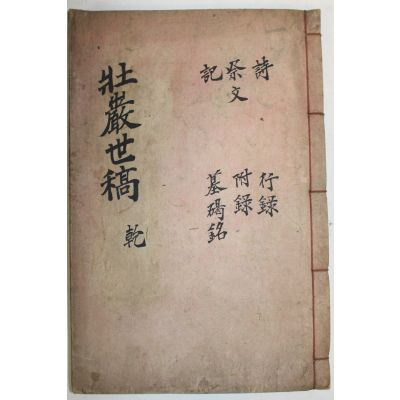 詩 行錄
祭文 附錄
記 墓碣銘
壯巖世稿 乾